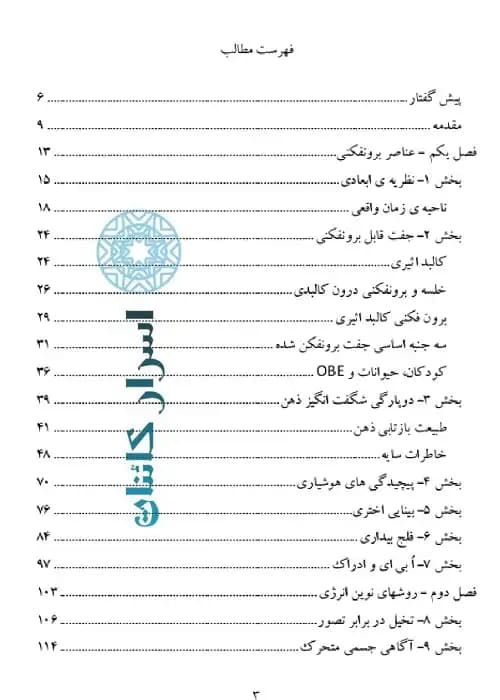 فهرست مطالب
پیش گفتار ........ ۶
مقدمه ........ ۹
فصل یکم - عناصر برونفکنی ........ ۱۳
بخش ۱- نظریه ی ابعادی ........ ۱۵
ناحیه ی زمان واقعی ........ ۱۸
بخش ۲- جفت قابل برونفکنی ........ ۲۴
کالبد اثیری ........ ۲۴
خلسه و برونفکنی درون کالبدی ........ ۲۶
برون فکنی کالبد اثیری ........ ۲۹
سه جنبه اساسی جفت برونفکن شده ........ ۳۱
کودکان، حیوانات و OBE ........ ۳۶
بخش ۳- دوپارگی شگفت انگیز ذهن ........ ۳۹
طبیعت بازتابی ذهن ........ ۴۱
خاطرات سایه ........ ۴۸
بخش ۴- پیچیدگی های هوشیاری ........ ۷۰
بخش ۵- بینایی اختری ........ ۷۶
بخش ۶- فلج بیداری ........ ۸۴
بخش ۷- اُ بی ای و ادراک ........ ۹۷
فصل دوم - روشهای نوین انرژی ........ ۱۰۳
بخش ۸- تخیل در برابر تصور ........ ۱۰۶
بخش ۹- آگاهی جسمی متحرک ........ ۱۱۴
۳
اسرار کائنات